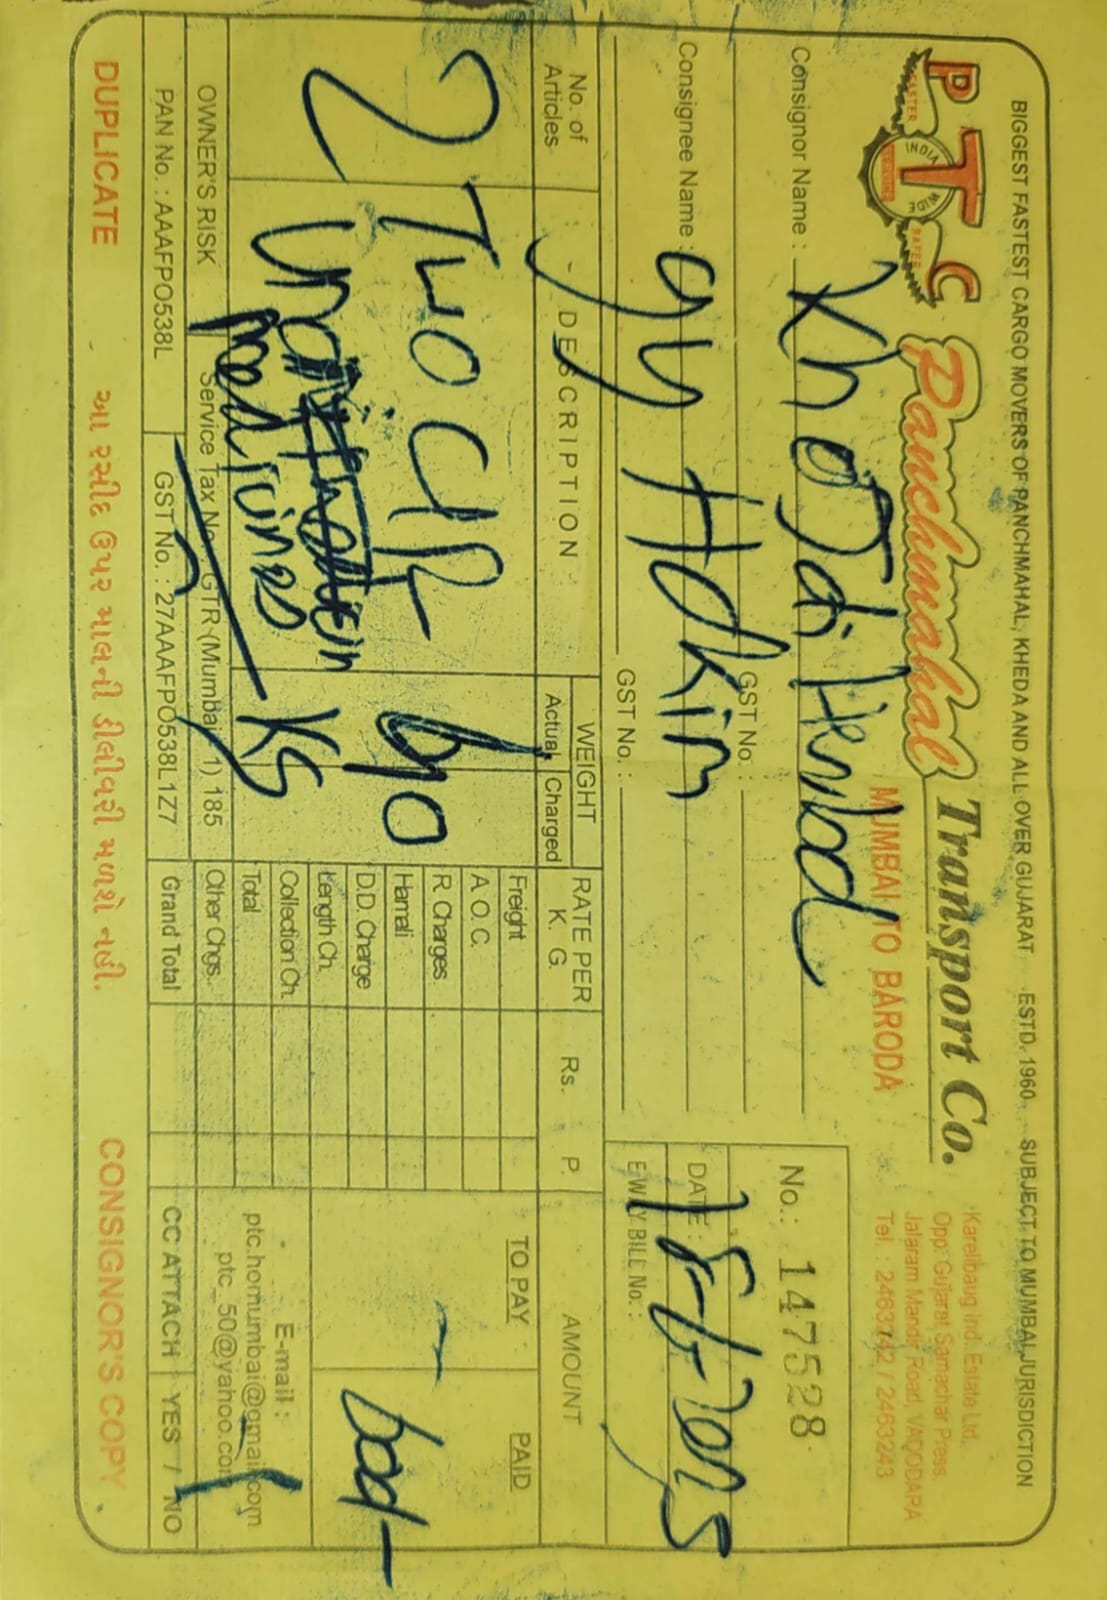 BIGGEST FASTEST CARGO MOVERS OF PANCHMAHAL, KHEDA AND ALL OVER GUJARAT ESTD. 1960 SUBJECT TO MUMBAI JURISDICTION
PTC
FASTER INDIA WIDE SAFER SERVICE
Panchmahal Transport Co.
MUMBAI TO BARODA
Karelibaug Ind. Estate Ltd.
Opp. Gujarat Samachar Press,
Jalaram Mandir Road, VADODARA
Tel.: 2463142 / 2463243
Consignor Name :
GST No. :
No.: 147528
Consignee Name : Hakim
GST No. :
DATE :
E WAY BILL No. :
No. of Articles
DESCRIPTION
WEIGHT
Actual Charged
RATE PER K. G.
Rs. P.
AMOUNT
2 Two
Kg
Freight
A. O. C.
R. Charges
Hamali
D.D. Charge
Length Ch.
Collection Ch.
Total
Other Chgs.
Grand Total
TO PAY
PAID
E-mail :
ptc.homumbai@gmail.com
ptc_50@yahoo.com
OWNER'S RISK
Service Tax No. GTR (Mumbai 1) 185
PAN No. : AAAFPO538L
GST No. : 27AAAFPO538L1Z7
CC ATTACH YES / NO
DUPLICATE
આ રસીદ ઉપર માલની ડીલીવરી મળશે નહી.
CONSIGNOR'S COPY